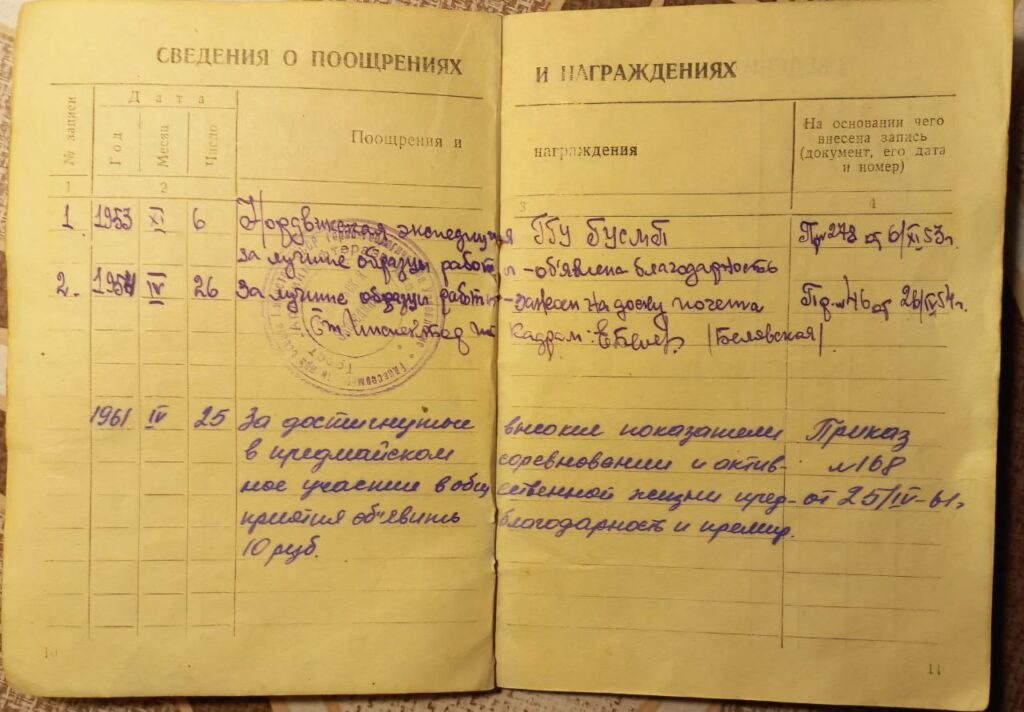 СВЕДЕНИЯ О ПООЩРЕНИЯХ И НАГРАЖДЕНИЯХ
№ записи
Дата
Год
Месяц
Число
Поощрения и награждения
На основании чего
внесена запись
(документ, его дата
и номер)
1 2 3 4
1. 1953 XI 6 Нордвикская экспедиция ГГУ ГУСМП Пр. № 278 от 6/XI 53 г.
за лучшие образцы работы - об'явлена благодарность
2. 1954 IV 26 За лучшие образцы работы - занесен на доску почета Пр. № 46 от 26/IV 54 г.
Ст. Инспектор по кадрам: (Белявская)
1961 IV 25 За достигнутые высокие показатели Приказ
в предмайском соревновании и актив- № 168
ное участие в общественной жизни пред- от 25/IV-61 г.
приятия об'явить благодарность и премир.
10 руб.
10
11